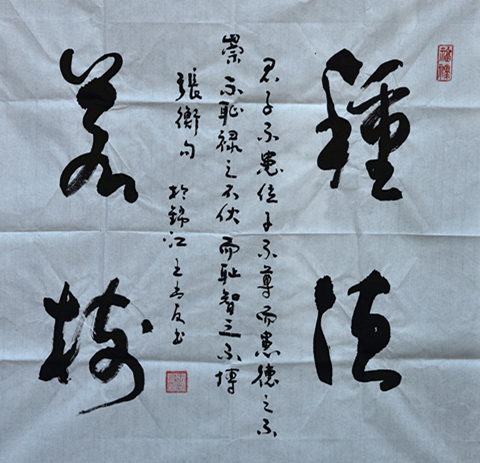 種德
若樹
君子不患位之不尊而患德之不
崇不恥祿之不伙而恥智之不博
張衡句
於錦江王友書